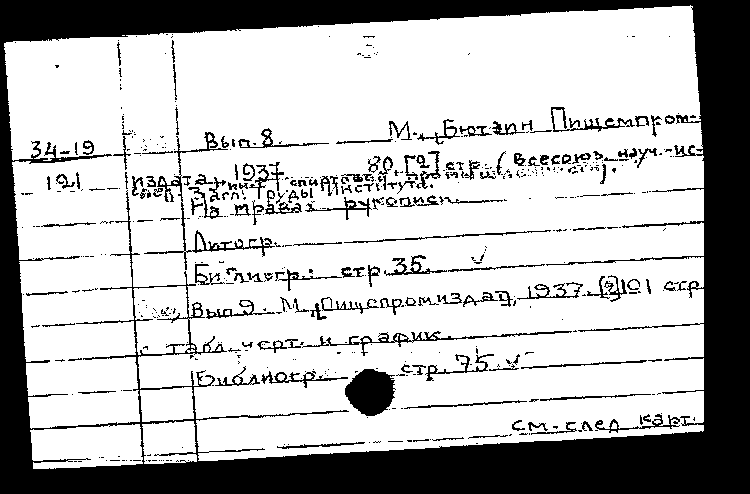 3
34-19 Вып. 8. М., Бютэин Пищепром-
121 издата, 1937. 80, [2] стр. (Всесоюз. науч.-ис-
инт спиртовой промышленности).
Загл: Труды Института.
На правах рукописи.
Литогр.
Библиогр.: стр. 35.
Вып 9. М., Пищепромиздат, 1937. [2] 101 стр
табл. черт. и график.
Библиогр. стр. 75.
См. след карт.